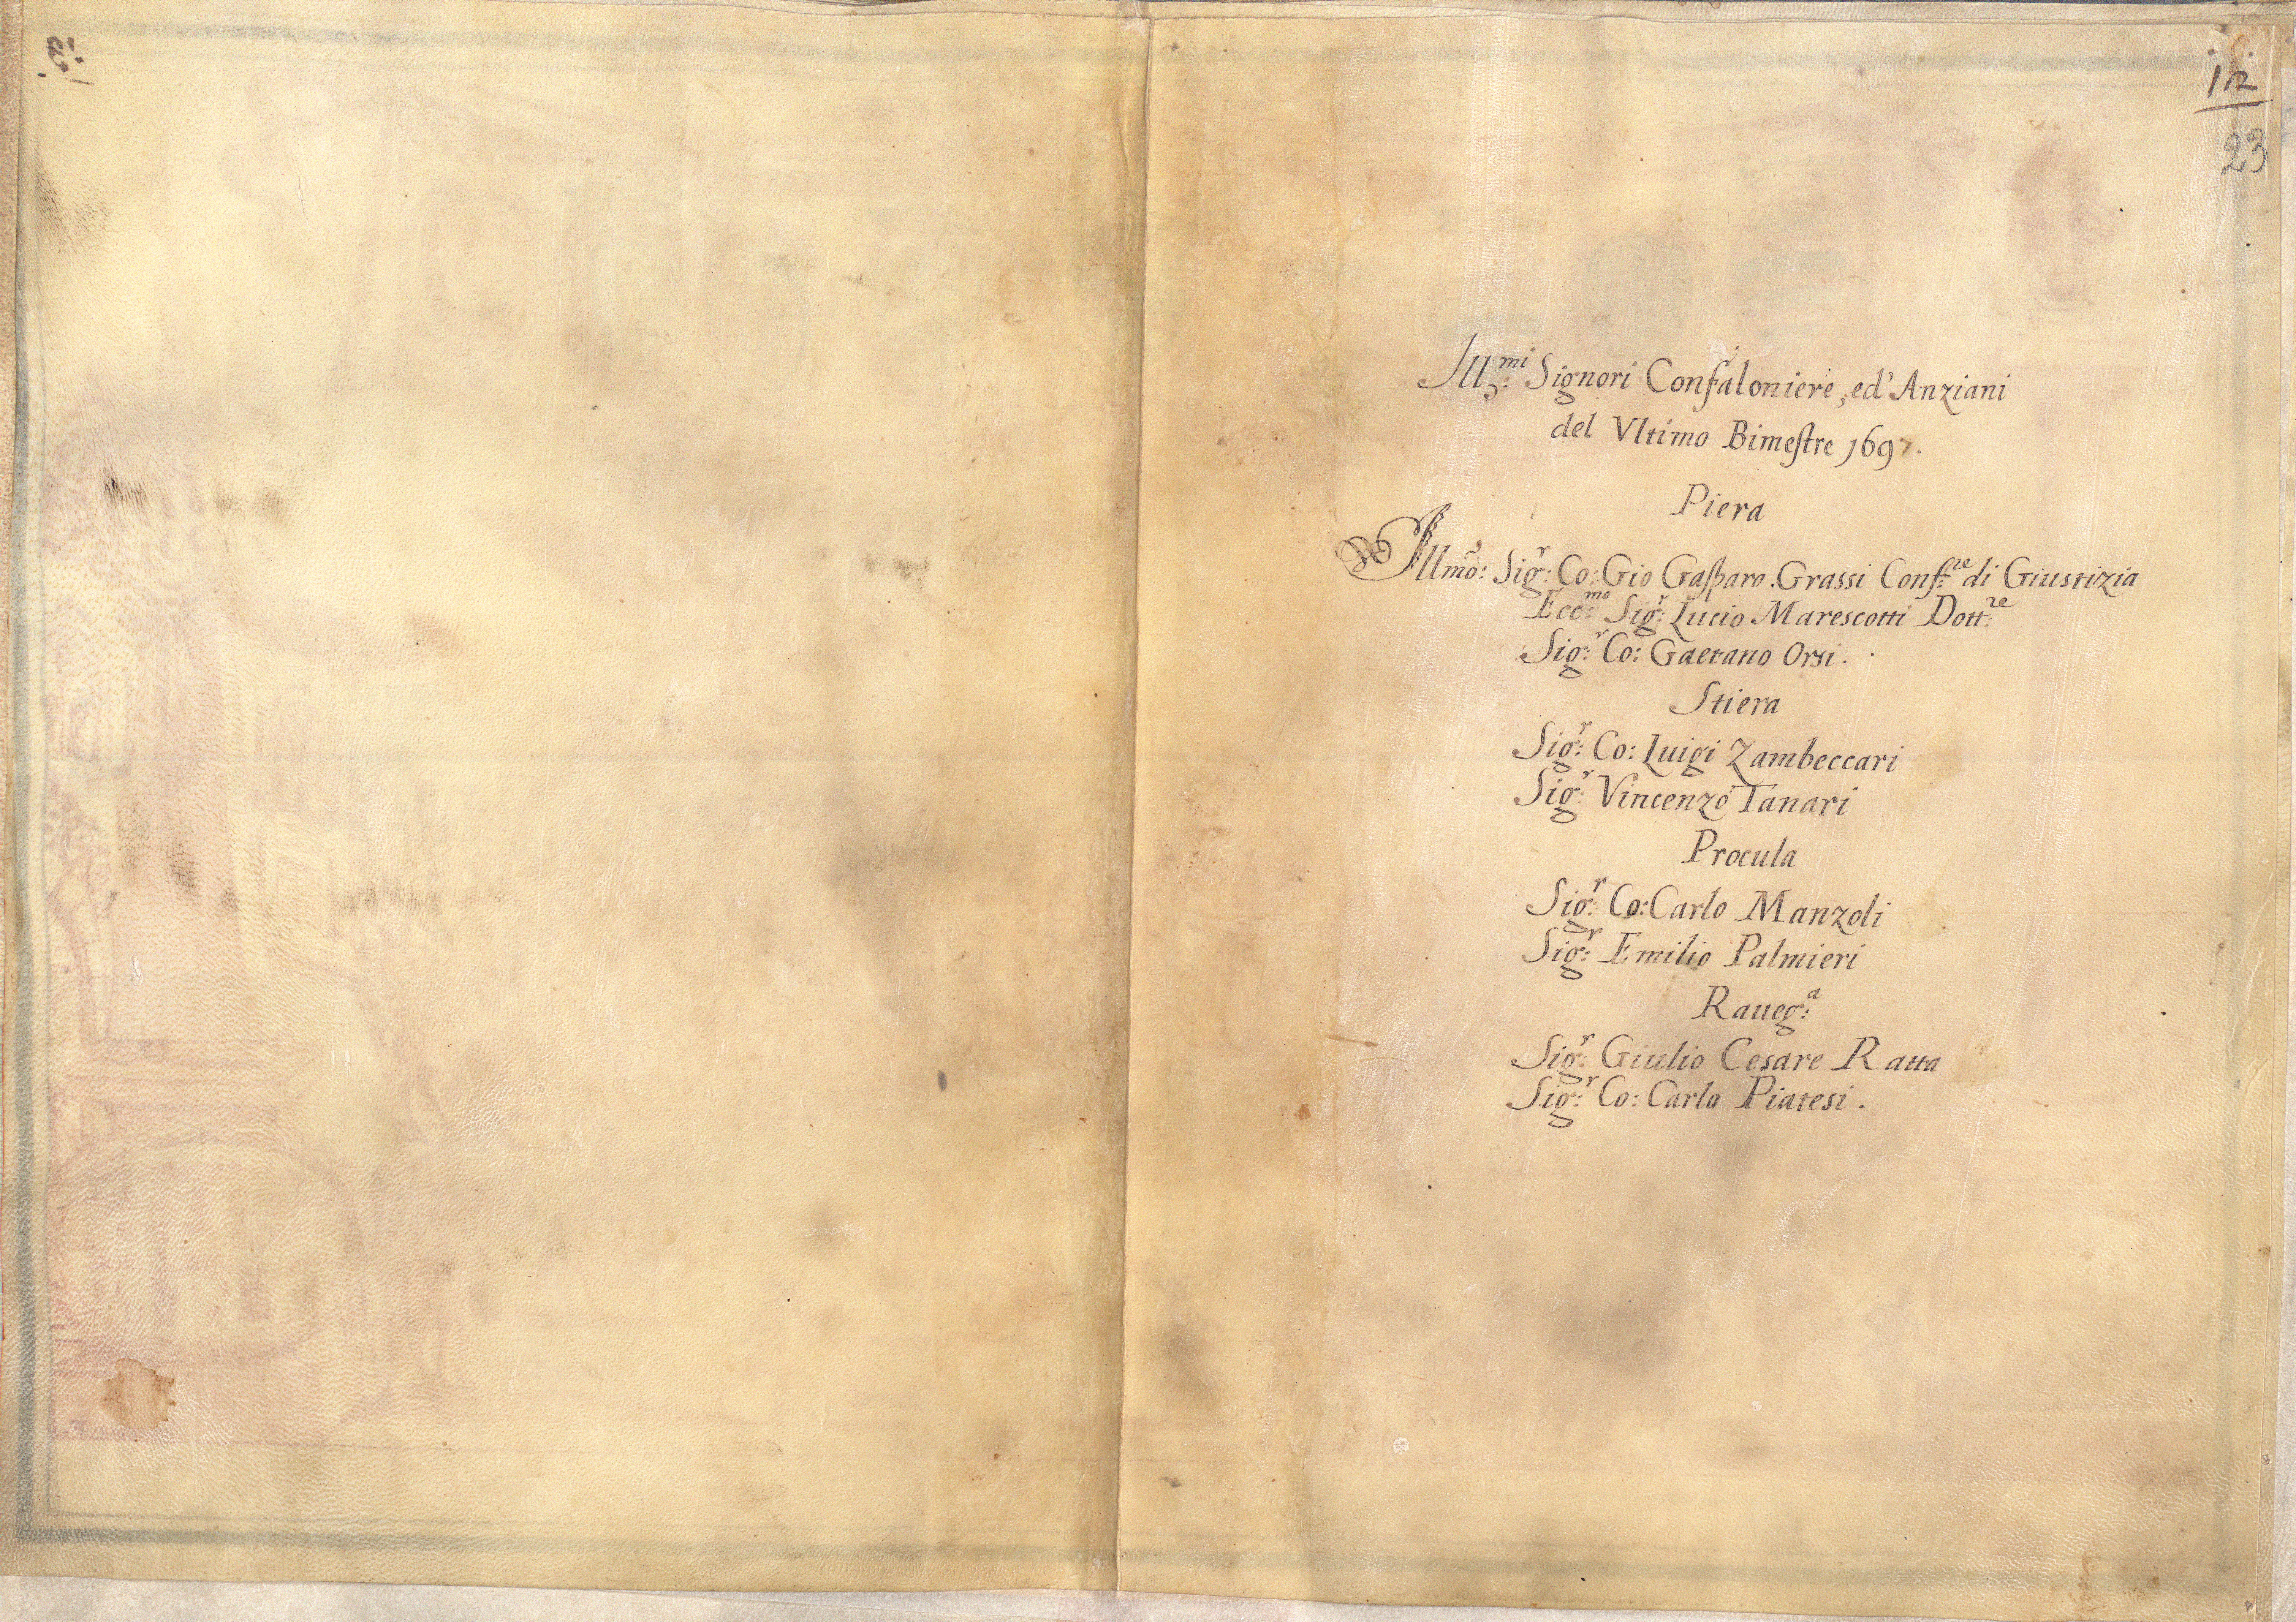 12
23
Ill.mi Signori Confaloniere, ed' Anziani
del Vltimo Bimestre 1697.
Piera
Illmo: Sig.r Co: Gio Gasparo Grassi Conf.re di Giustizia
Ecc.mo Sig.r Lucio Marescotti Dott.re
Sig.r Co: Gaetano Orsi.
Stiera
Sig.r Co: Luigi Zambeccari
Sig.r Vincenzo Tanari
Procula
Sig.r Co: Carlo Manzoli
Sig.r Emilio Palmieri
Raueg.a
Sig.r Giulio Cesare Ratta
Sig.r Co: Carlo Piatesi.